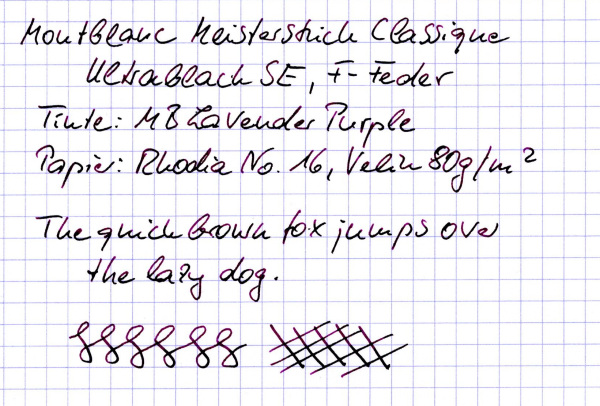 Montblanc Meisterstück Classique
Ultrablack SE, F-Feder
Tinte: MB Lavender Purple
Papier: Rhodia No. 16, Velin 80g/m²
The quick brown fox jumps over
the lazy dog.